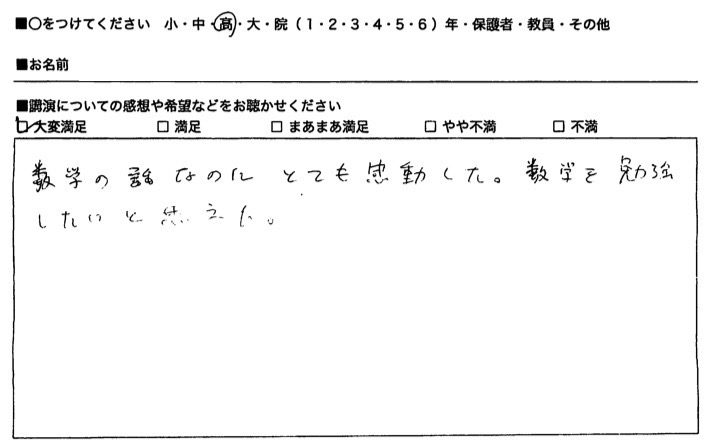 ■○をつけてください 小・中・高・大・院（1・2・3・4・5・6）年・保護者・教員・その他
■お名前
■講演についての感想や希望などをお聴かせください
□大変満足 □ 満足 □ まあまあ満足 □ やや不満 □ 不満
数学の話なのに とても感動した。数学を勉強
したいと思えた。